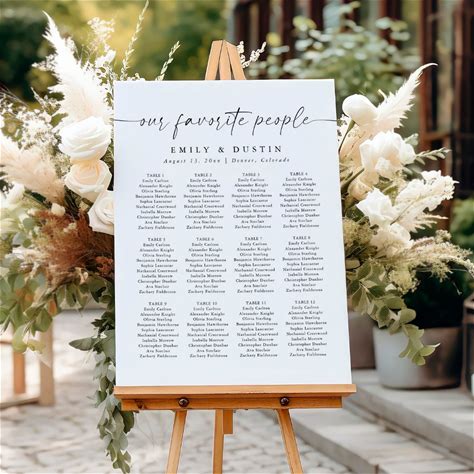 our favorite people
EMILY & DUSTIN
August 13, 20xx | Denver, Colorado
TABLE 1
Emily Carlson
Alexander Knight
Olivia Sterling
Benjamin Hawthorne
Sophia Lancaster
Nathanial
Isabella
Christopher Dunbar
Ava Sinclair
Zachary
TABLE 2
Emily Carlson
Alexander Knight
Olivia Sterling
Benjamin Hawthorne
Sophia Lancaster
Nathanial
Isabella
Christopher Dunbar
Ava Sinclair
Zachary
TABLE 3
Emily Carlson
Alexander Knight
Olivia Sterling
Benjamin Hawthorne
Sophia Lancaster
Nathanial
Isabella
Christopher Dunbar
Ava Sinclair
Zachary
TABLE 4
Emily Carlson
Alexander Knight
Olivia Sterling
Benjamin Hawthorne
Sophia Lancaster
Nathanial
Isabella
Christopher Dunbar
Ava Sinclair
Zachary
TABLE 5
Emily Carlson
Alexander Knight
Olivia Sterling
Benjamin Hawthorne
Sophia Lancaster
Nathanial
Isabella
Christopher Dunbar
Ava Sinclair
Zachary
TABLE 6
Emily Carlson
Alexander Knight
Olivia Sterling
Benjamin Hawthorne
Sophia Lancaster
Nathanial
Isabella
Christopher Dunbar
Ava Sinclair
Zachary
TABLE 7
Emily Carlson
Alexander Knight
Olivia Sterling
Benjamin Hawthorne
Sophia Lancaster
Nathanial
Isabella
Christopher Dunbar
Ava Sinclair
Zachary
TABLE 8
Emily Carlson
Alexander Knight
Olivia Sterling
Benjamin Hawthorne
Sophia Lancaster
Nathanial
Isabella
Christopher Dunbar
Ava Sinclair
Zachary
TABLE 9
Emily Carlson
Alexander Knight
Olivia Sterling
Benjamin Hawthorne
Sophia Lancaster
Nathanial
Isabella
Christopher Dunbar
Ava Sinclair
Zachary
TABLE 10
Emily Carlson
Alexander Knight
Olivia Sterling
Benjamin Hawthorne
Sophia Lancaster
Nathanial
Isabella
Christopher Dunbar
Ava Sinclair
Zachary
TABLE 11
Emily Carlson
Alexander Knight
Olivia Sterling
Benjamin Hawthorne
Sophia Lancaster
Nathanial
Isabella
Christopher Dunbar
Ava Sinclair
Zachary
TABLE 12
Emily Carlson
Alexander Knight
Olivia Sterling
Benjamin Hawthorne
Sophia Lancaster
Nathanial
Isabella
Christopher Dunbar
Ava Sinclair
Zachary